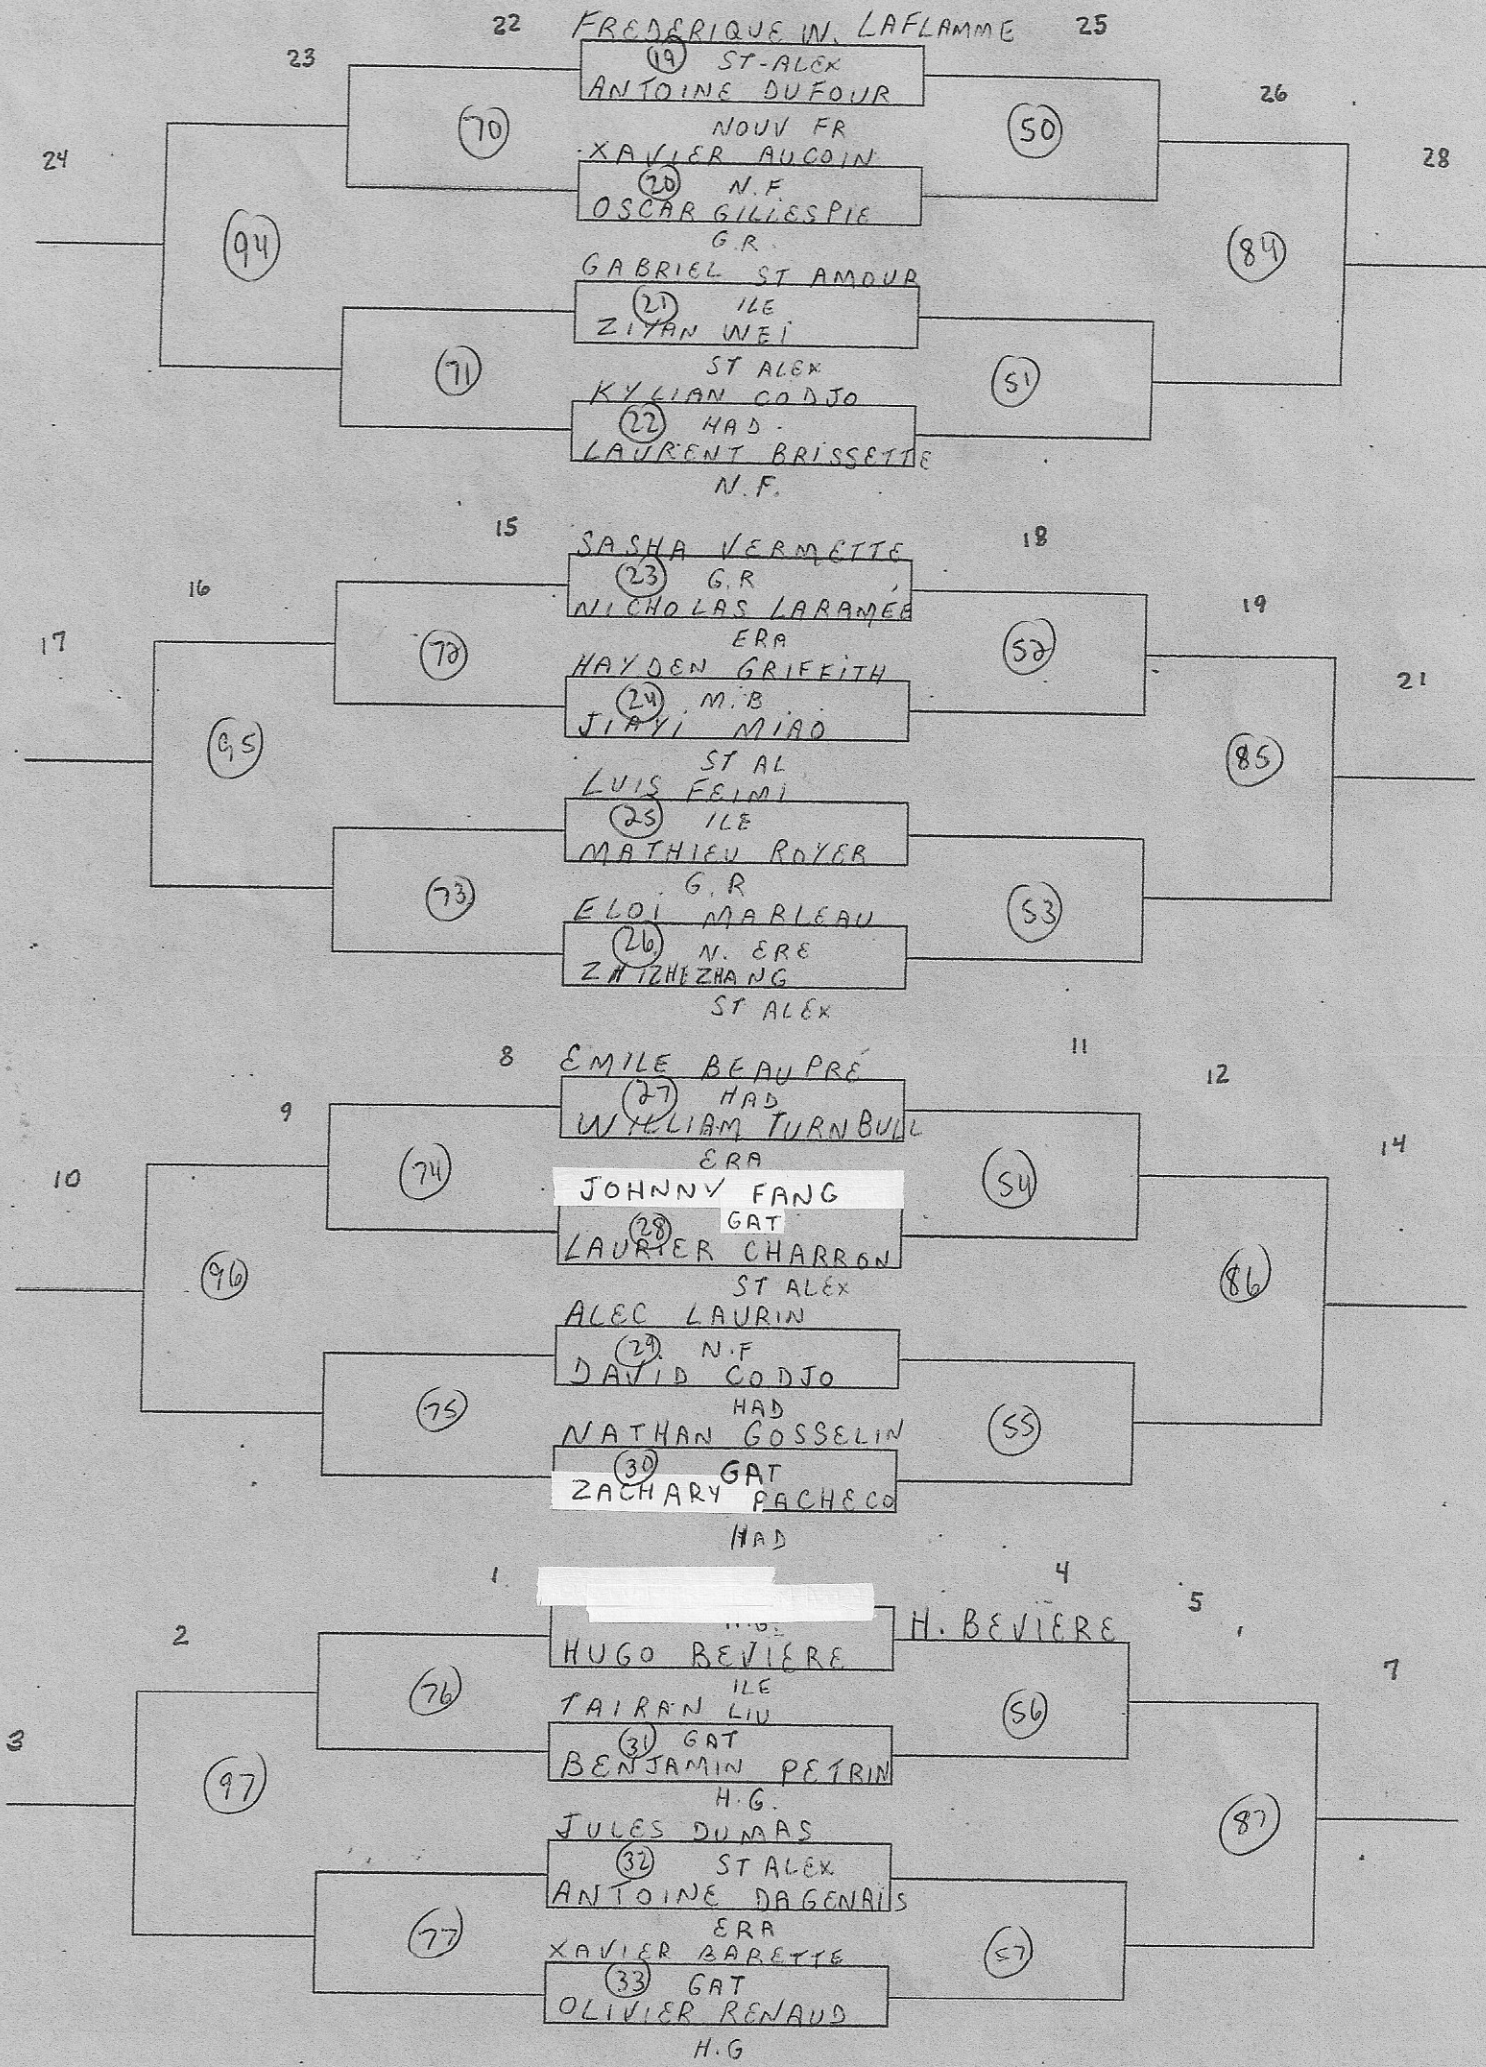 22 FREDERIQUE W. LAFLAMME 25
23 19 ST-ALEX
ANTOINE DUFOUR 26
70 NOUV FR 50
24 XAVIER AUCOIN 28
20 N.F
OSCAR GILLESPIE
94 G.R 84
GABRIEL ST AMOUR
21 ILE
ZIYAN WEI
71 ST ALEX 51
KYLIAN CODJO
22 HAD.
LAURENT BRISSETTE
N.F.
15 SASHA VERMETTE 18
16 23 G.R
NICHOLAS LARAMÉE 19
17 72 ERA 52
HAYDEN GRIFFITH 21
24 M.B
JIAYI MIAO
95 ST AL 85
LUIS FEIMI
25 ILE
MATHIEU ROYER
73 G.R 53
ELOI MARLEAU
26 N. ERE
ZHIZHEZHANG
ST ALEX
8 EMILE BEAUPRÉ 11
9 27 HAD 12
WILLIAM TURNBULL
10 74 ERA 54 14
JOHNNY FANG
28 GAT
LAURIER CHARRON
96 ST ALEX 86
ALEC LAURIN
29 N.F
DAVID CODJO
75 HAD 55
NATHAN GOSSELIN
30 GAT
ZACHARY PACHECO
HAD
1 4
5
2 H. BEVIERE
HUGO BEVIERE 7
76 ILE 56
3 TAIRAN LIU
31 GAT
BENJAMIN PETRIN
97 H.G. 87
JULES DUMAS
32 ST ALEX
ANTOINE DAGENAIS
77 ERA 57
XAVIER BARETTE
33 GAT
OLIVIER RENAUD
H.G